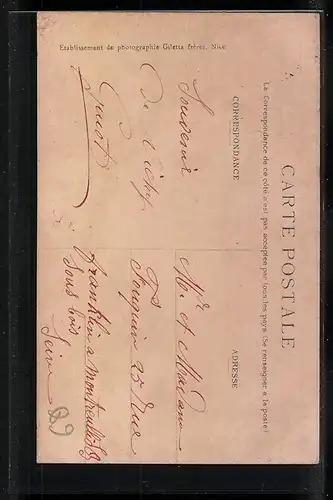 CARTE POSTALE
La Correspondance de ce côté n'est pas acceptée par tous les pays (Se renseigner à la poste)
CORRESPONDANCE
ADRESSE
Souvenir
De l'
Mr et Madame
25 Rue
Franklin a Montreuil
Sous bois
Seine
Etablissement de photographie Giletta frères, Nice